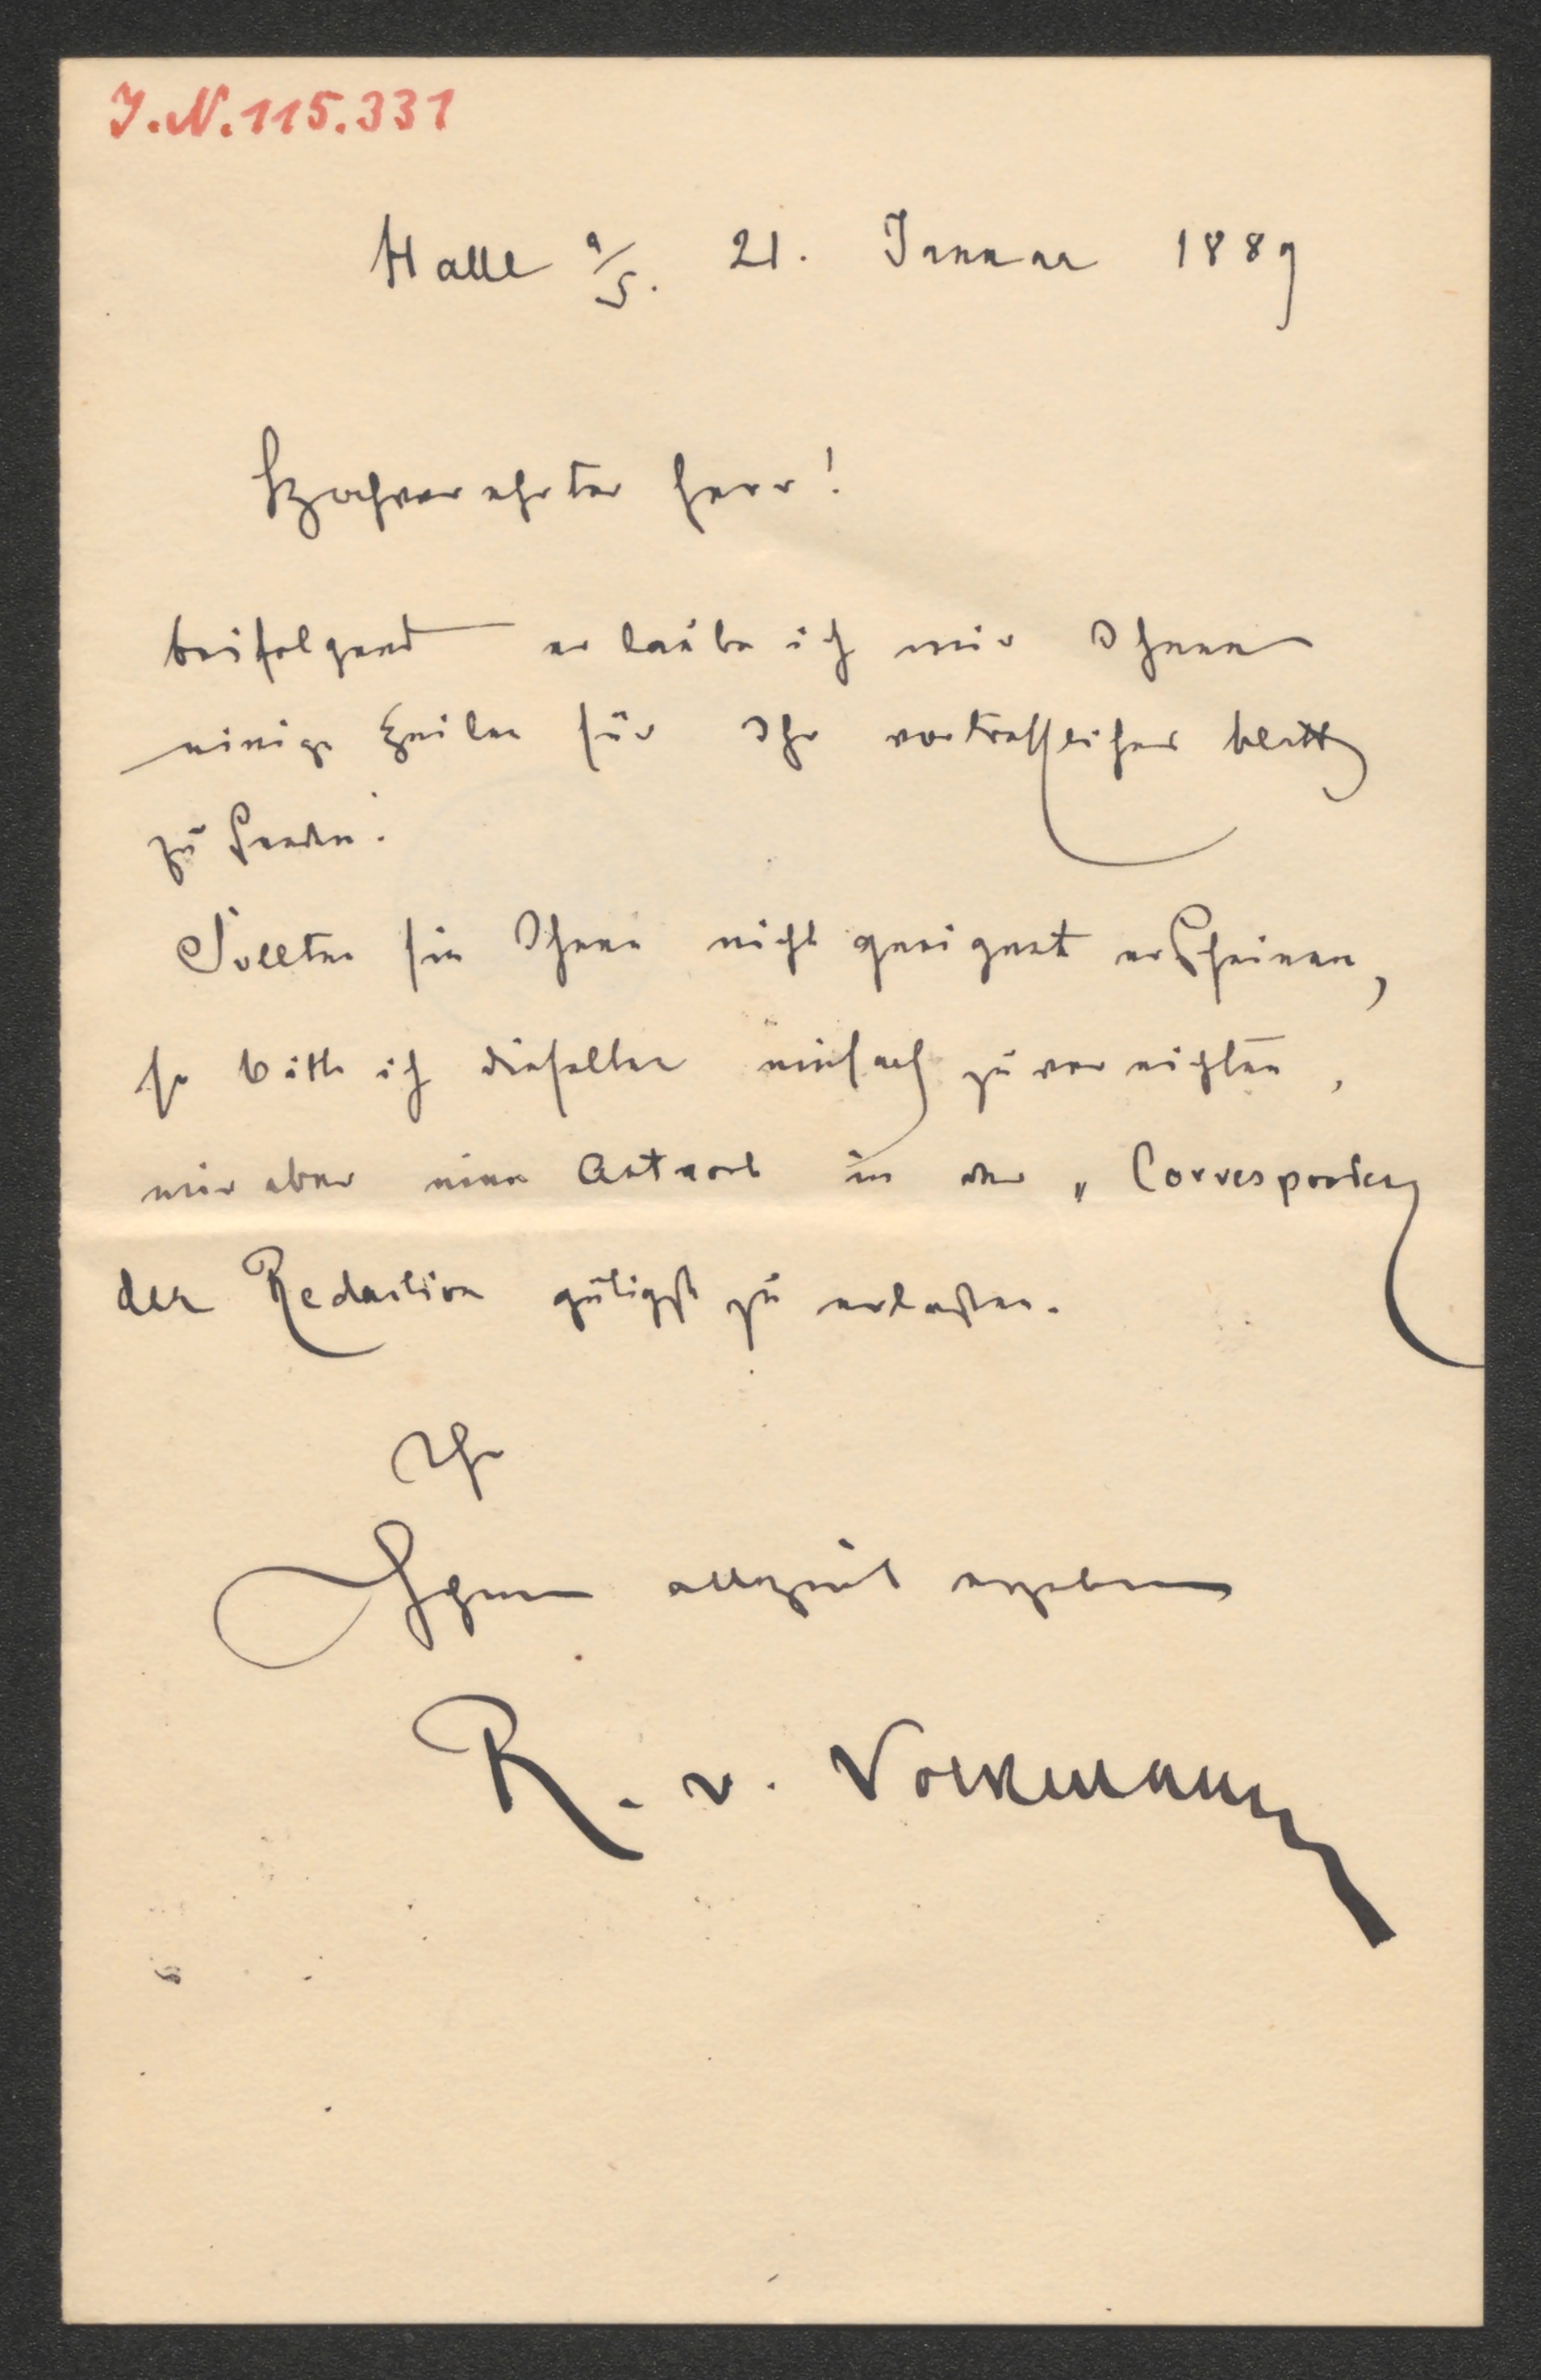 J.N. 115.331
Halle a/S. 21. Januar 1889
Hochverehrter Herr!
beifolgend erlaube ich mir Ihnen
einige Zeilen für Ihr vortreffliches Blatt
zu senden.
Sollten sie Ihnen nicht geeignet erscheinen,
so bitte ich dieselben einfach zu vernichten,
mir aber eine Antwort in der „Correspondenz
der Redaction gütigst zu erlassen.
Ihr
Ihnen allezeit ergebener
R. v. Volkmann